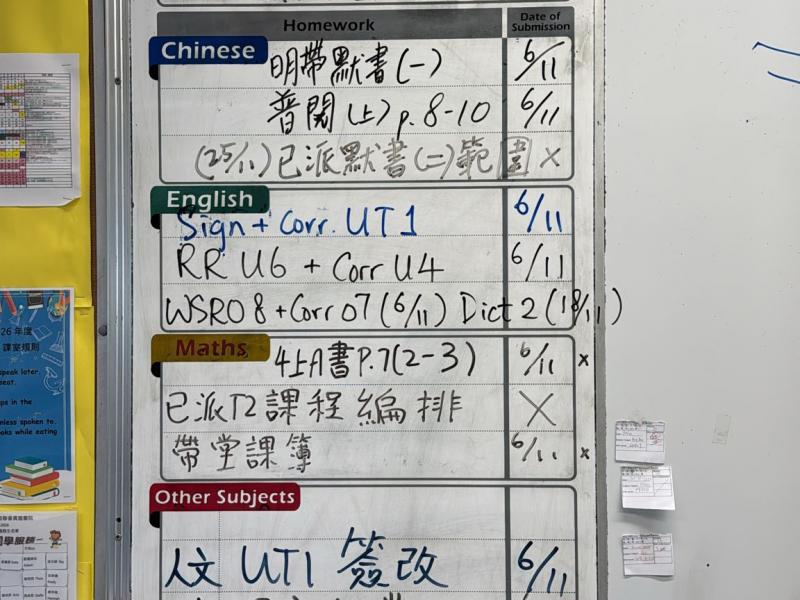 Homework Date of Submission
Chinese
明帶默書(一) 6/11
普閱(上) p.8-10 6/11
(25/11)已派默書(二)範圍 X
English
Sign + Corr. UT1 6/11
RR U6 + Corr U4 6/11
WSR08 + Corr07 (6/11) Dict 2 (18/11)
Maths
4上A書P.7(2-3) 6/11 x
已派T2課程編排 X
帶堂課簿 6/11 x
Other Subjects
人文 UT1 簽改 6/11
26年度
課室規則
speak later.
seat.
ps in the
nless spoken to.
oks while eating